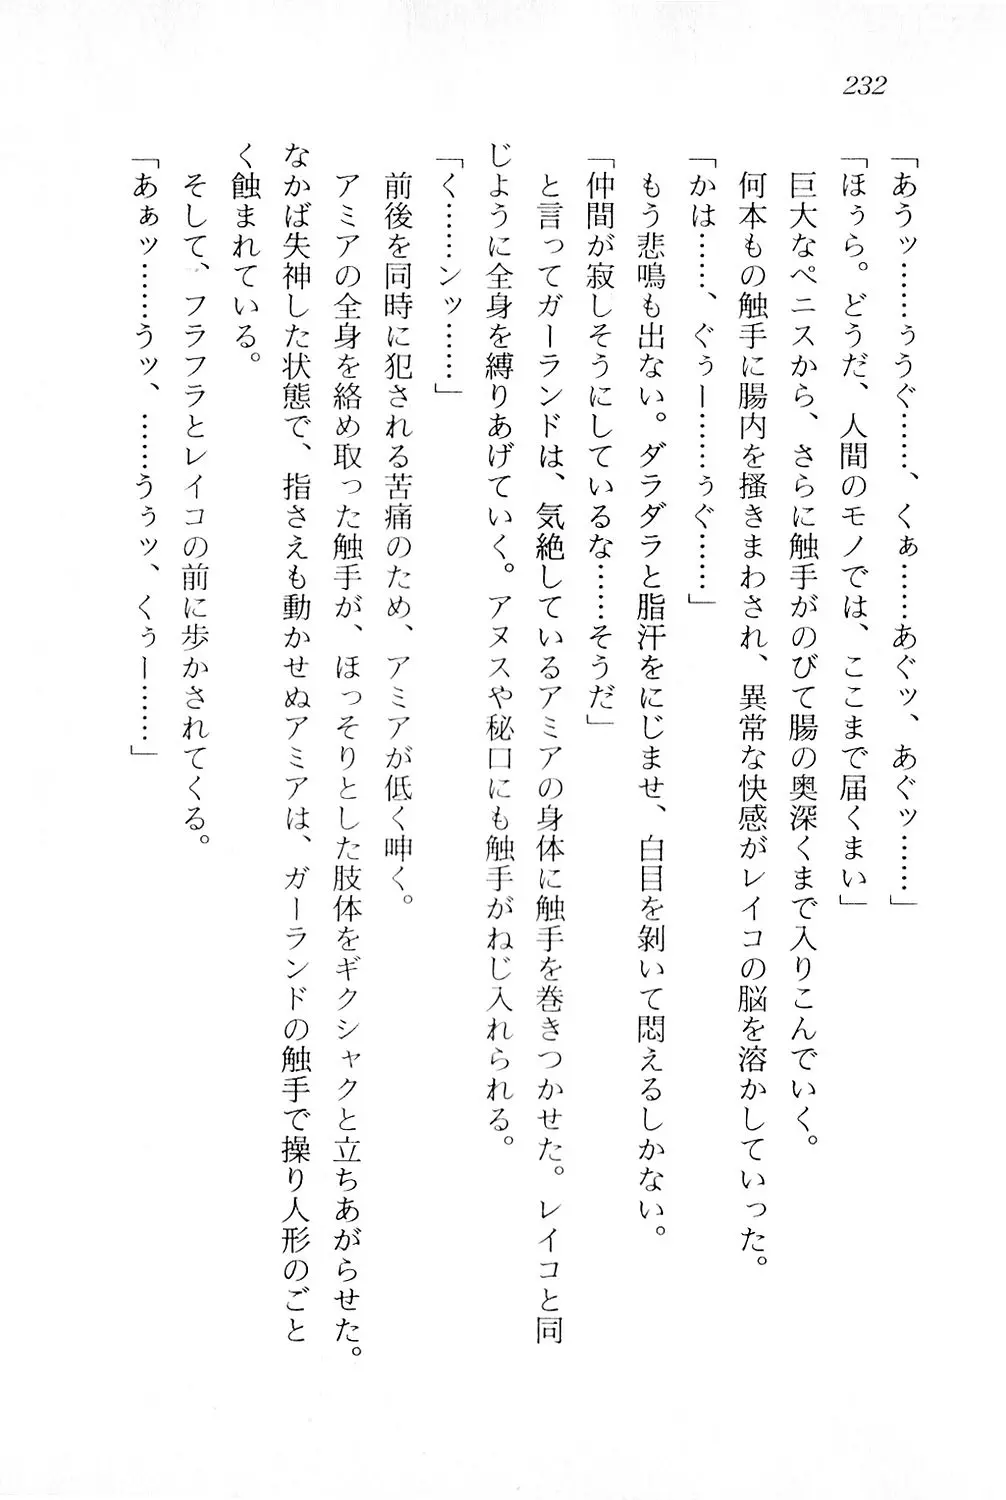 232
「あうッ……ぅうぐ……、くぁ……あぐッ、あぐッ……」
「ほぅら。どうだ、人間のモノでは、ここまで届くまい」
巨大なペニスから、さらに触手がのびて腸の奥深くまで入りこんでいく。
何本もの触手に腸内を掻きまわされ、異常な快感がレイコの脳を溶かしていった。
「かは……、ぐぅー……ぅぐ……」
もう悲鳴も出ない。ダラダラと脂汗をにじませ、白目を剝いて悶えるしかない。
「仲間が寂しそうにしているな……そうだ」
と言ってガーランドは、気絶しているアミアの身体に触手を巻きつかせた。レイコと同
じように全身を縛りあげていく。アヌスや秘口にも触手がねじ入れられる。
「く……ンッ……」
前後を同時に犯される苦痛のため、アミアが低く呻く。
アミアの全身を絡め取った触手が、ほっそりとした肢体をギクシャクと立ちあがらせた。
なかば失神した状態で、指さえも動かせぬアミアは、ガーランドの触手で操り人形のごと
く蝕まれている。
そして、フラフラとレイコの前に歩かされてくる。
「あぁッ……うッ、……うぅッ、くぅー……」